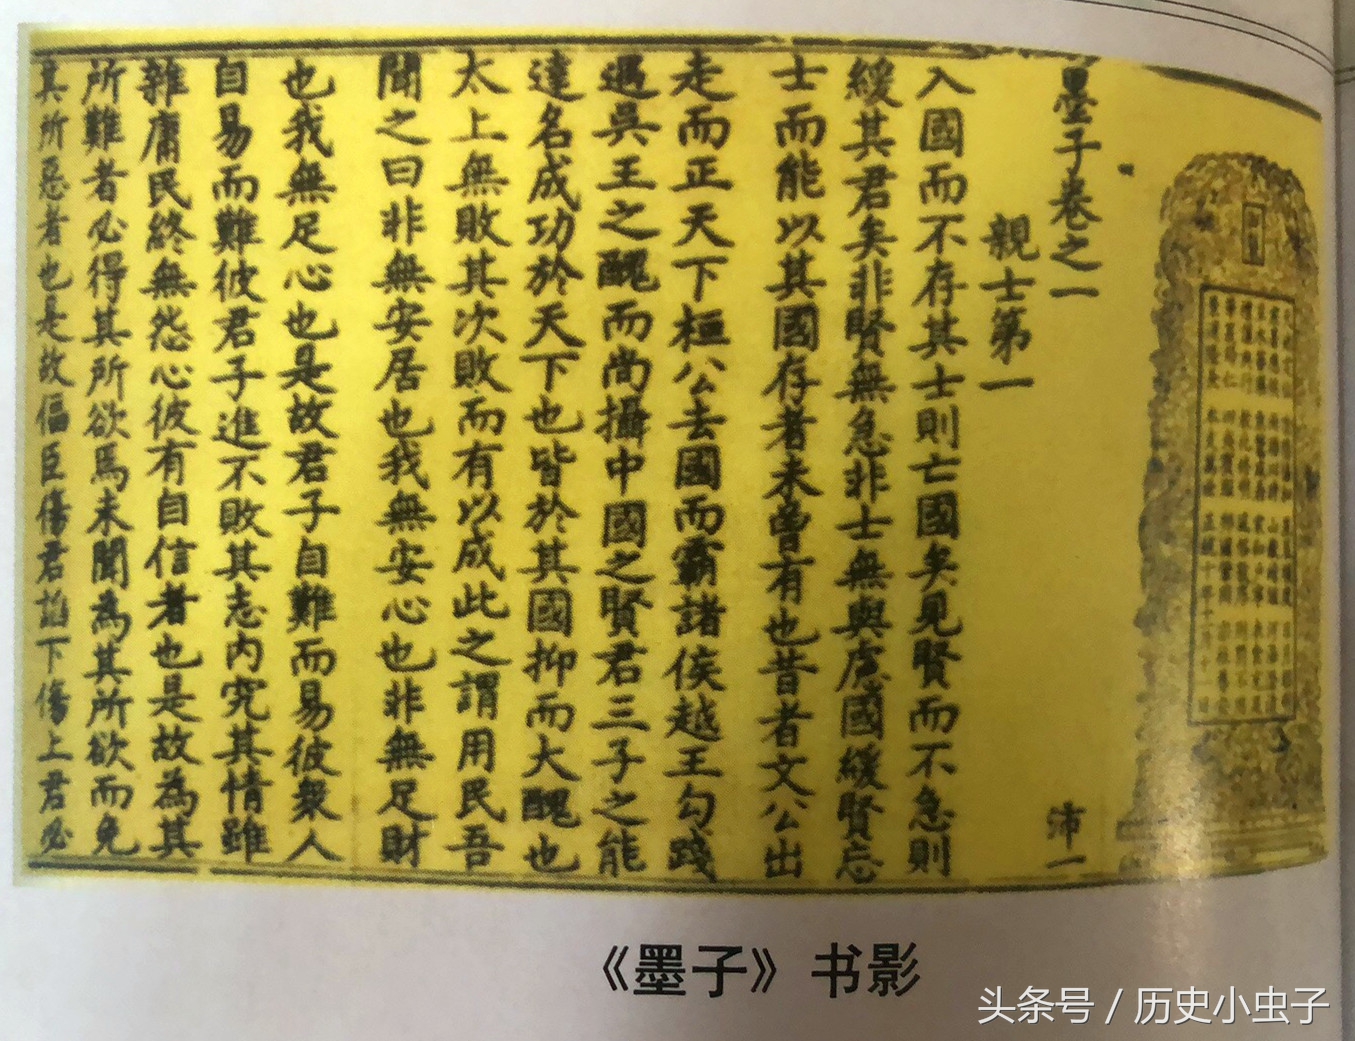 墨子卷之一
沛一
親士第一
入國而不存其士則亡國矣見賢而不急則
緩其君矣非賢無急非士無與慮國緩賢忘
士而能以其國存者未曾有也昔者文公出
走而正天下桓公去國而霸諸侯越王勾踐
遇吳王之醜而尚攝中國之賢君三子之能
達名成功於天下也皆於其國抑而大醜也
太上無敗其次敗而有以成此之謂用民吾
聞之曰非無安居也我無安心也非無足財
也我無足心也是故君子自難而易彼衆人
自易而難彼君子進不敗其志内究其情雖
雜庸民終無怨心彼有自信者也是故為其
所難者必得其所欲焉未聞為其所欲而免
其所惡者也是故偪臣傷君諂下傷上君必
《墨子》书影
头条号 / 历史小虫子